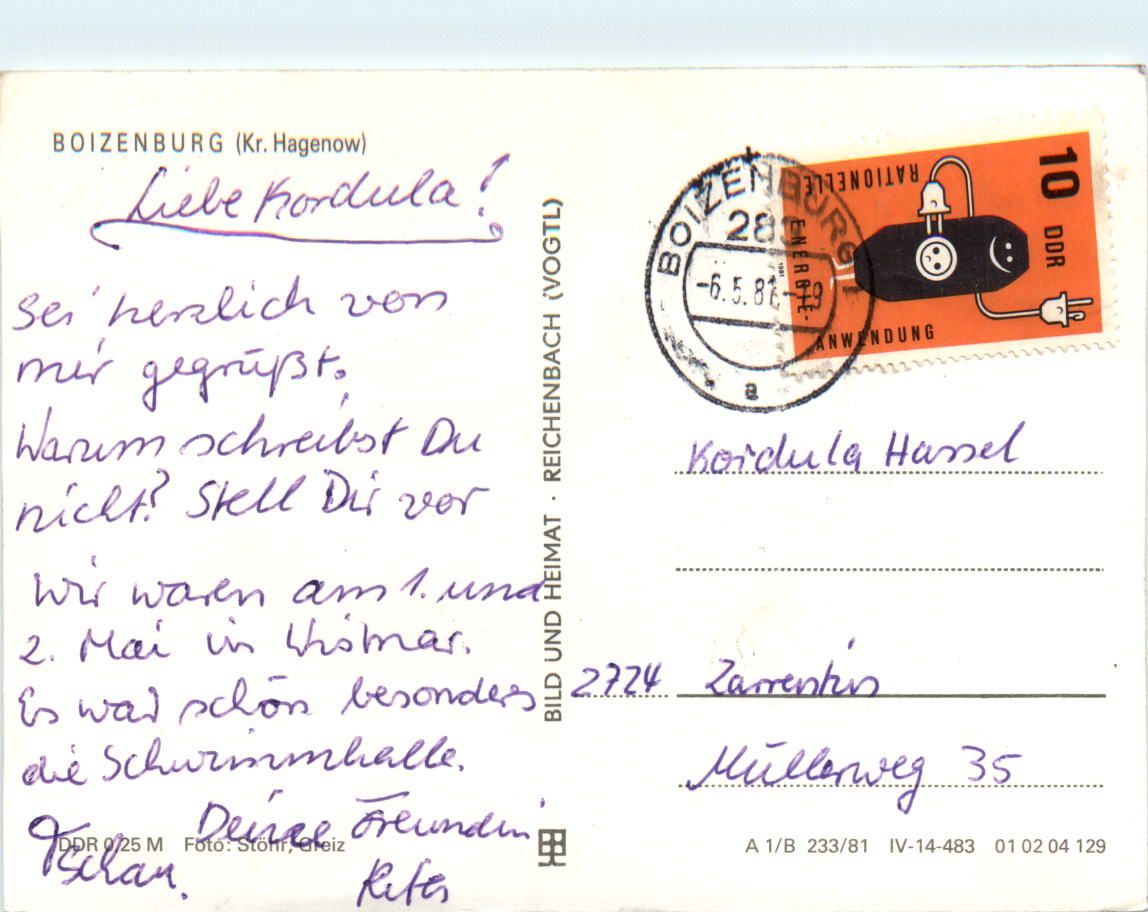 BOIZENBURG (Kr. Hagenow)
Liebe Kordula!
Sei herzlich von
mir gegrüßt.
Warum schreibst Du
nicht? Stell Dir vor
Wir waren am 1. und
2. Mai in Wismar.
Es war schön besonders
die Schwimmhalle.
Deine Freundin
Tschau.
DDR 0,25 M Foto: Stöhr, Greiz
BILD UND HEIMAT · REICHENBACH (VOGTL)
BOIZENBURG
-6.5.81-19
a
10 DDR
RATIONELLE
ENERGIE-
ANWENDUNG
1981
Kordula Hassel
2724 Zarrentin
Müllerweg 35
A 1/B 233/81 IV-14-483 01 02 04 129